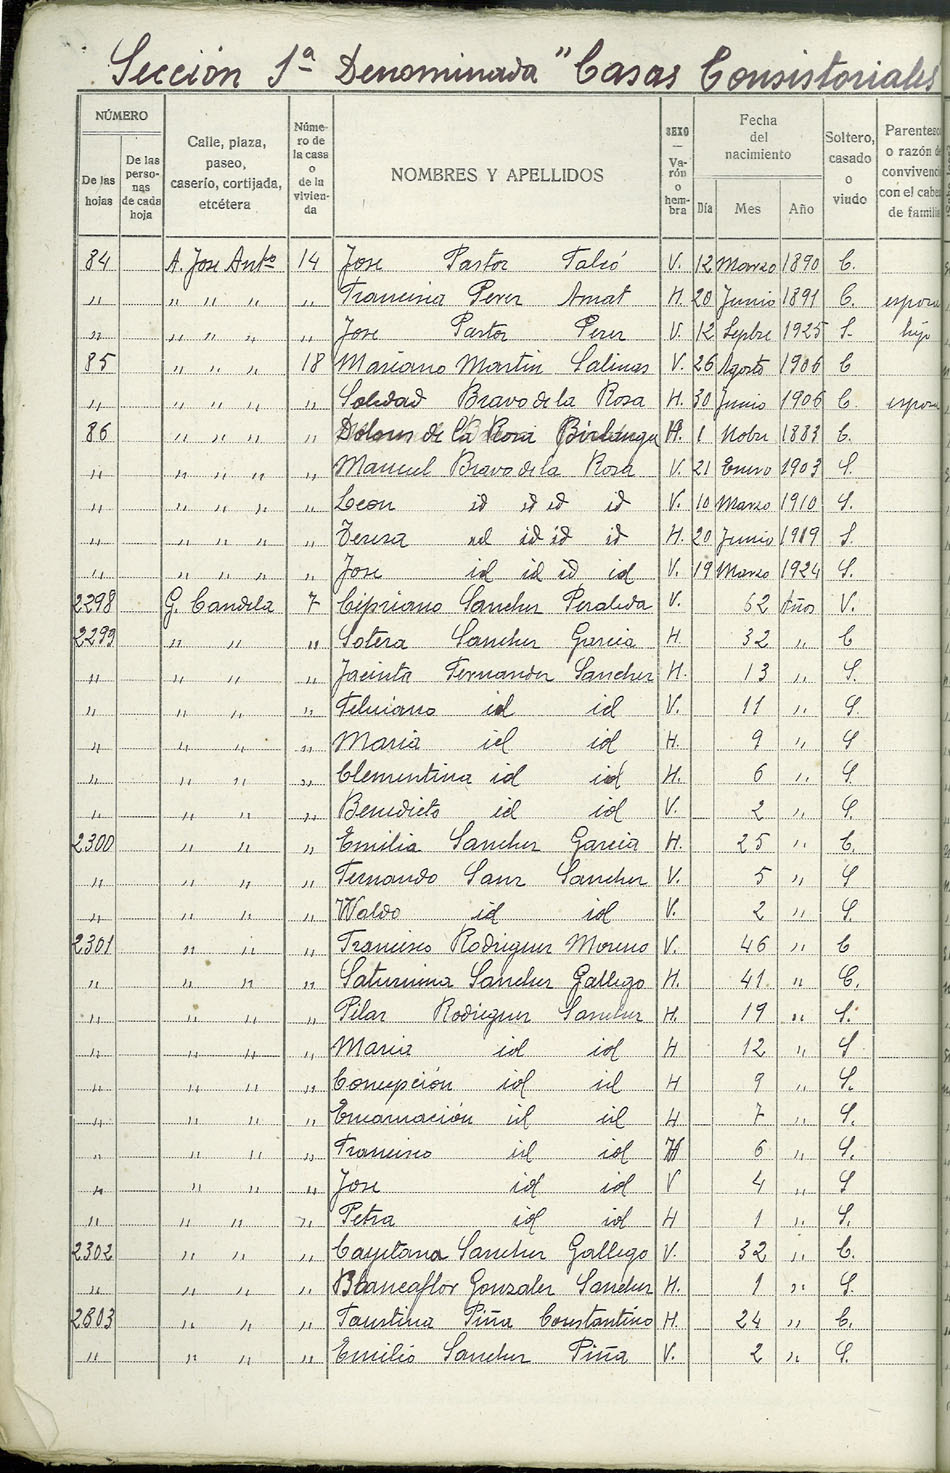 Sección 1ª Denominada "Casas Consistoriales
NÚMERO
De las hojas
De las perso-nas de cada hoja
Calle, plaza, paseo, caserío, cortijada, etcétera
Núme-ro de la casa o de la vivien-da
NOMBRES Y APELLIDOS
SEXO — Va-rón o hem-bra
Fecha del nacimiento
Día Mes Año
Soltero, casado o viudo
Parentesc o razón de convivenc con el cabe de familia
84 A. Jose Antº 14 Jose Pastor V. 12 Marzo 1890 C.
" " " " " Francisca Perez Amat H. 20 Junio 1891 C. esposa
" " " " " Jose Pastor Perez V. 12 Sepbre 1925 S. hijo
85 " " " 18 Mariano Martin Salinas V. 26 Agosto 1906 C
" " " " " Soledad Bravo de la Rosa H. 30 Junio 1906 C. esposa
86 " " " " Dolores de la Rosa Berlanga H. 1 Nobe 1883 C.
" " " " " Manuel Bravo de la Rosa V. 21 Enero 1903 S.
" " " " " Leon id id id id V. 10 Marzo 1910 S.
" " " " " Teresa id id id id H. 20 Junio 1919 S.
" " " " " Jose id id id id V. 19 Marzo 1924 S.
2298 G. Candela 7 Cipriano Sanchez Peraleda V. 62 Años V.
2299 " " " Sotera Sanchez Garcia H. 32 " C
" " " " Jacinta Fernandez Sanchez H. 13 " S.
" " " " Feliciano id id V. 11 " S.
" " " " Maria id id H. 9 " S
" " " " Clementina id id H. 6 " S.
" " " " Benedicto id id V. 2 " S.
2300 " " " Emilia Sanchez Garcia H. 25 " C.
" " " " Fernando Sanz Sanchez V. 5 " S
" " " " Waldo id id V. 2 " S.
2301 " " " Francisco Rodriguez Moreno V. 46 " C
" " " " Saturnina Sanchez Gallego H. 41. " C.
" " " " Pilar Rodriguez Sanchez H. 19 " S.
" " " " Maria id id H 12 " S
" " " " Concepción id id H 9 " S.
" " " " Encarnación id id H 7 " S.
" " " " Francisco id id 6 " S.
" " " " Jose id id V 4 " S
" " " " Petra id id H 1 " S.
2302 " " " Cayetana Sanchez Gallego V. 32 " C.
" " " " Blancaflor Gonzalez Sanchez H. 1 " S.
2303 " " " Faustina Piña Constantino H. 24 " C.
" " " " Emilio Sanchez Piña V. 2 " S.